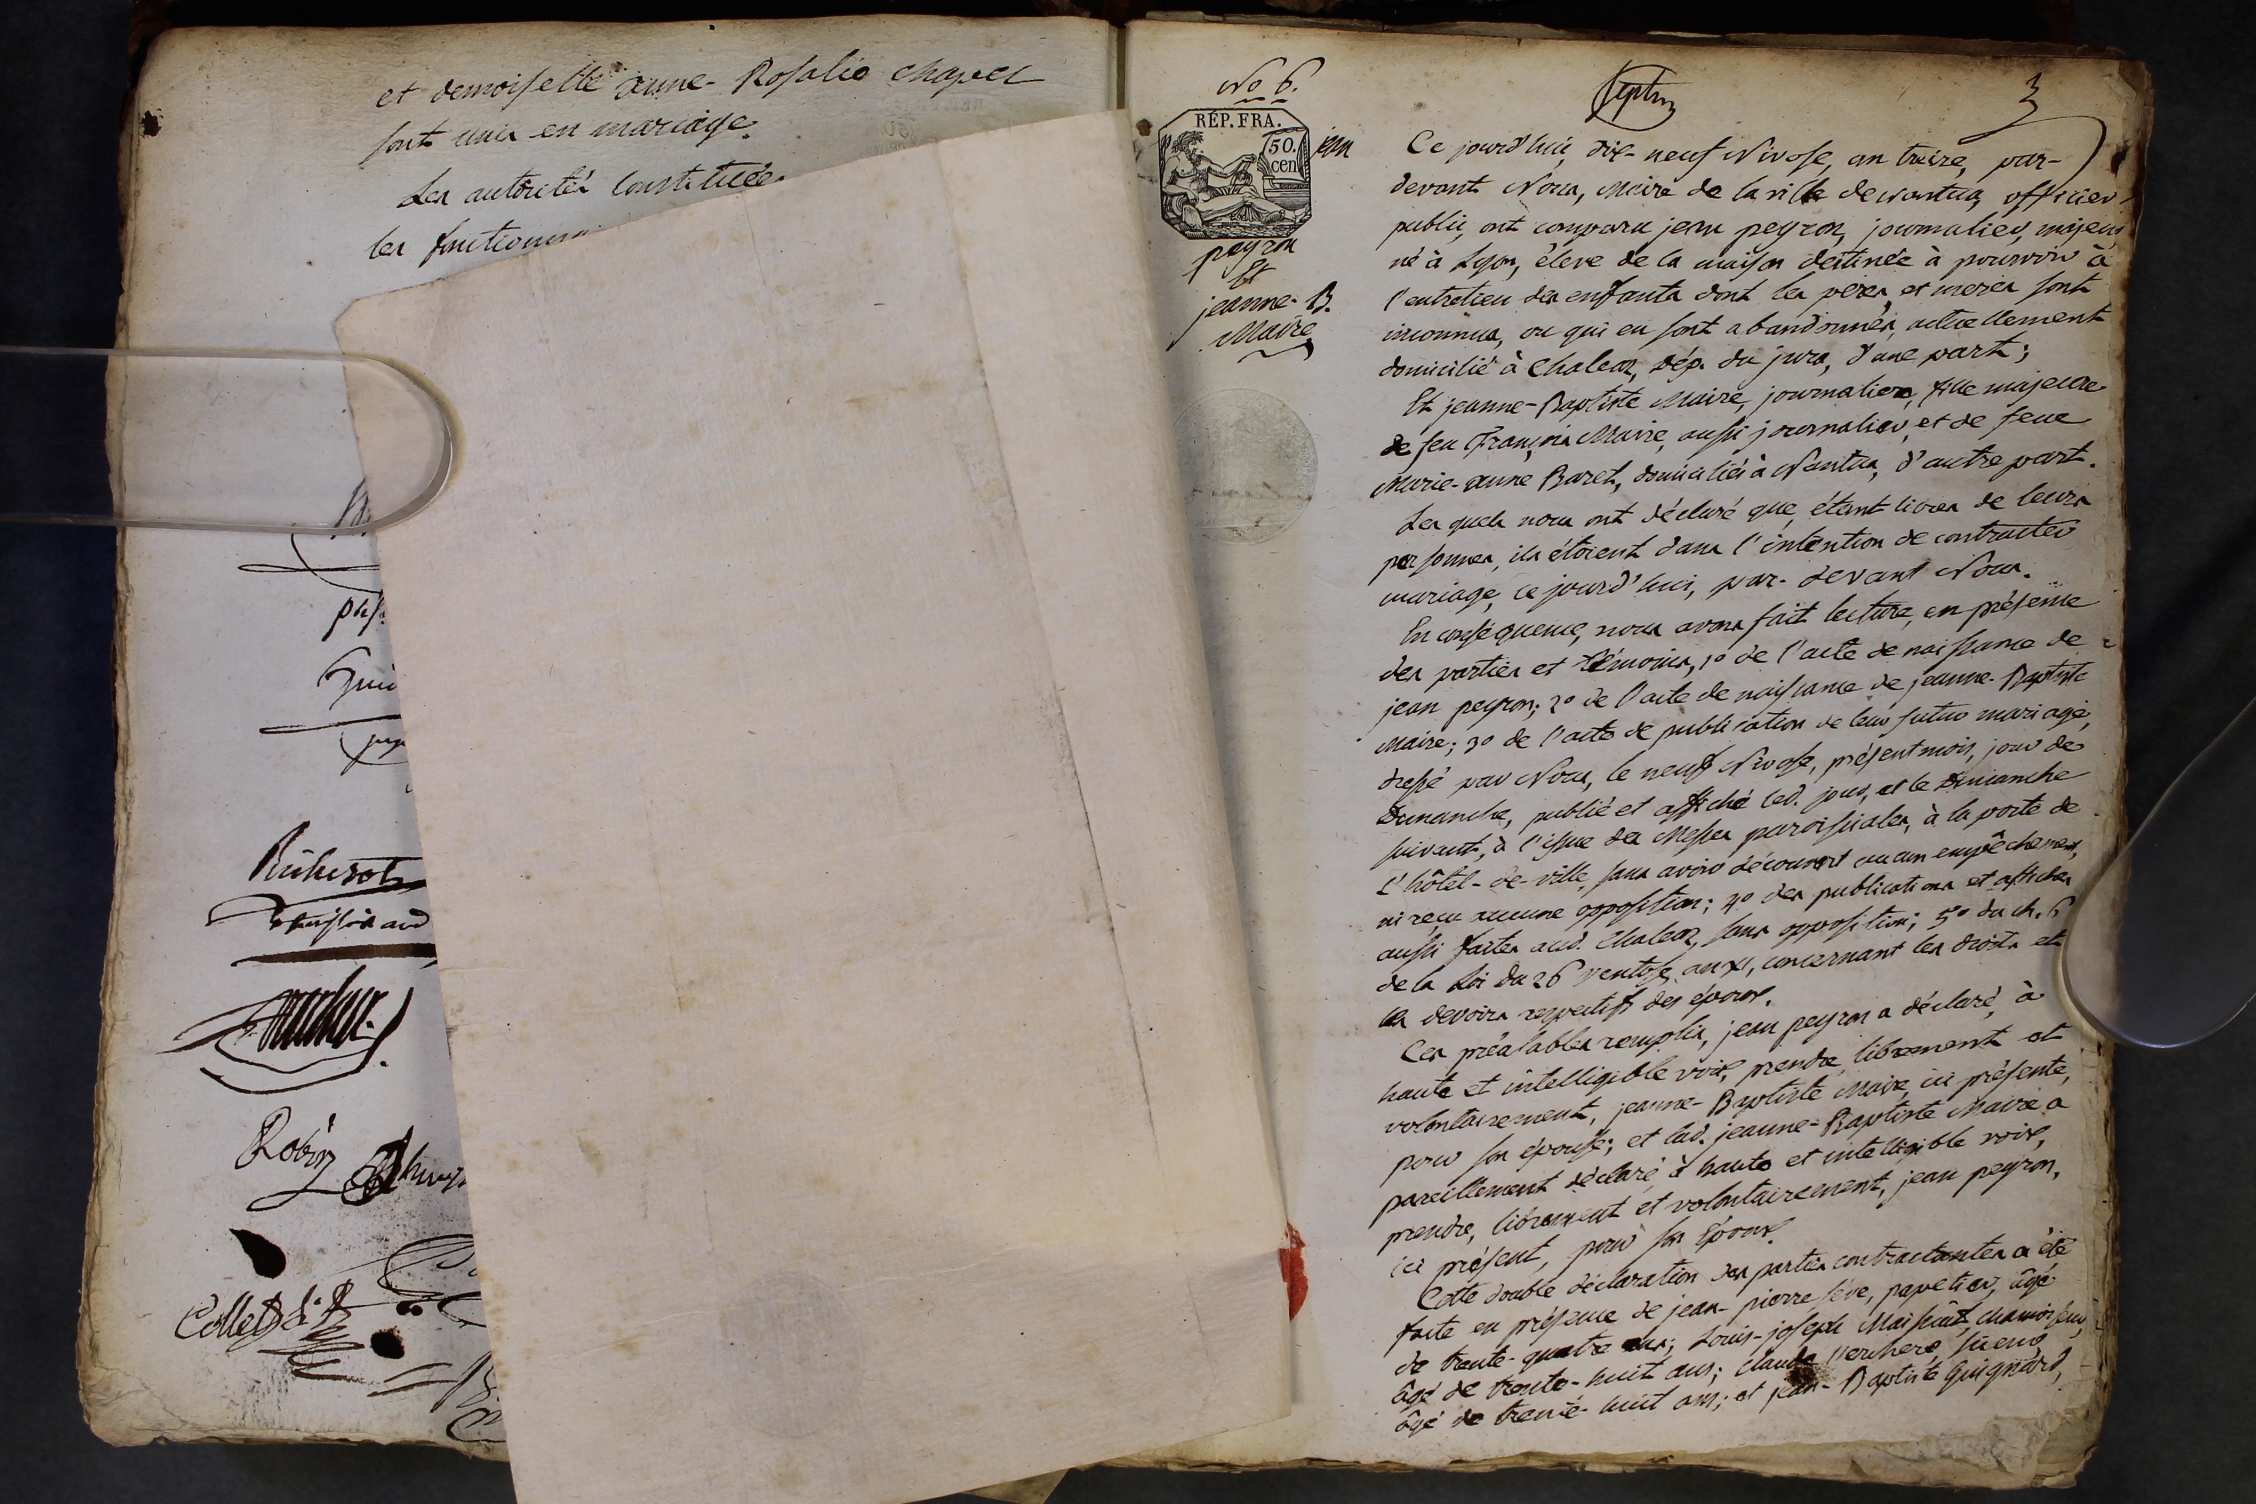 et demoiselle anne-Rosalie chapel
sont unis en mariage.
Les autorités Constituées
les fonctionn
Robin
Collet
No. 6.
RÉP. FRA.
50.
cen
jean
peyron
Et
jeanne-B.
Maire
3
Ce jourd'hui, dix-neuf Nivose, an treize, par-
devant Nous, Maire de la ville de nantua, officier
public, ont comparu jean peyron, journalier, majeur
né à Lyon, éleve de la maison destinée à pourvoir à
l'entretien des enfants dont les peres et meres sont
inconnus, ou qui en sont abandonnés, actuellement
domicilié à Chaleaz, dép. du jura, d'une part;
Et jeanne-Baptiste Maire, journaliere, fille majeure
de feu François Maire, aussi journalier, et de feue
Marie-anne Baret, domiciliés à Nantua, d'autre part.
Les quels nous ont déclaré que, étant libres de leurs
personnes, ils étoient dans l'intention de contracter
mariage, ce jourd'hui, par-devant Nous.
En conséquence, nous avons fait lecture, en présence
des parties et témoins, 1o de l'acte de naissance de
jean peyron; 2o de l'acte de naissance de jeanne-Baptiste
Maire; 3o de l'acte de publication de leur futur mariage,
dressé par Nous, le neuf Nivose, présent mois, jour de
Dimanche, publié et affiché led. jour, et le Dimanche
suivant, à l'issue des Messes paroissiales, à la porte de
l'hôtel-de-ville, sans avoir découvert aucun empêchement,
ni reçu aucune opposition; 4o des publications et affiches
aussi faites aud. Chaleaz, sans opposition; 5o du ch. 6
de la Loi du 26 ventose, an XI, concernant les droits et
les devoirs respectifs des époux.
Ces préalables remplis, jean peyron a déclaré, à
haute et intelligible voix, prendre, librement et
volontairement, jeanne-Baptiste Maire, ici présente,
pour son épouse; et lad. jeanne-Baptiste Maire a
pareillement déclaré, à haute et intelligible voix,
prendre, librement et volontairement, jean peyron,
ici présent, pour son Époux.
Cette double déclaration des parties contractantes a été
faite en présence de jean-pierre séve, papetier, âgé
de trente-quatre ans; Louis-joseph Maissiat, chamoiseur,
âgé de trente-huit ans; claude
âgé de trente-huit ans; et jean-Baptiste Guignard,